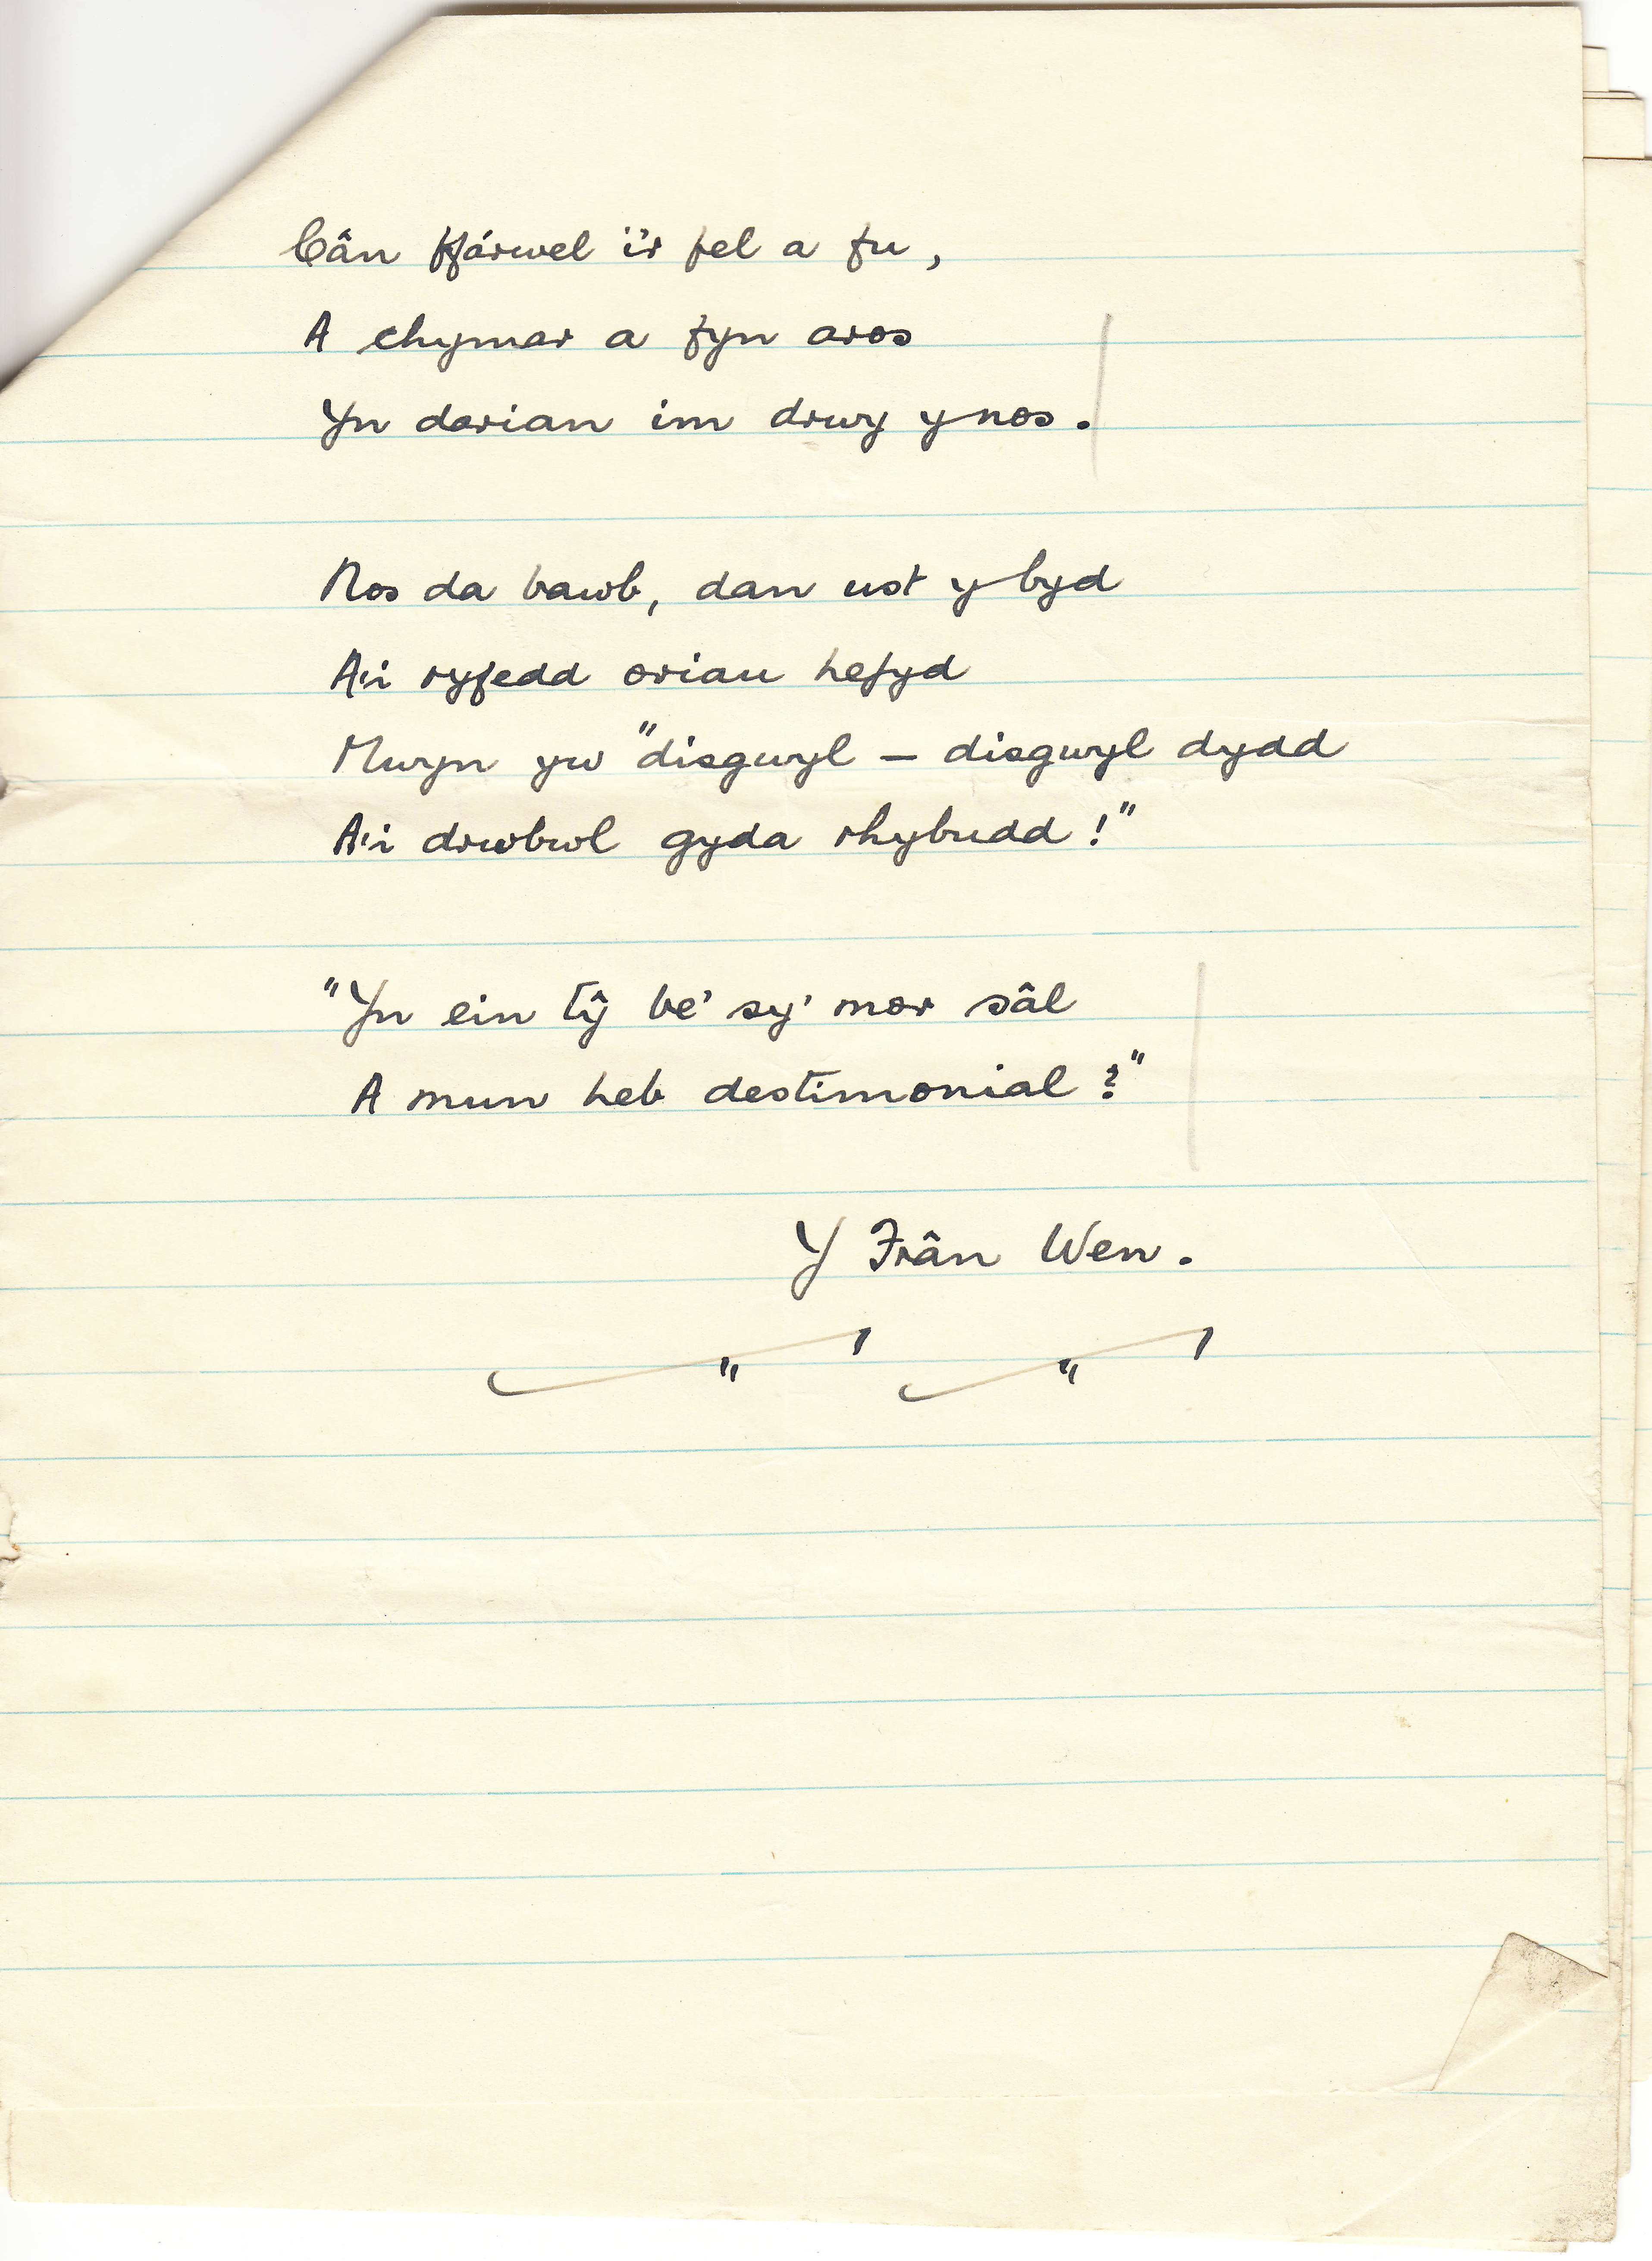 Cân ffárwel i'r fel a fu,
A chymar a fyn aros
Yn darian im drwy y nos.
Nos da bawb, dan ust y byd
A'i ryfedd oriau hefyd
Mwyn yw "disgwyl – disgwyl dydd
A'i drwbwl gyda rhybudd!"
"Yn ein tŷ be' sy' mor sâl
A mun heb destimonial?"
Y Frân Wen.